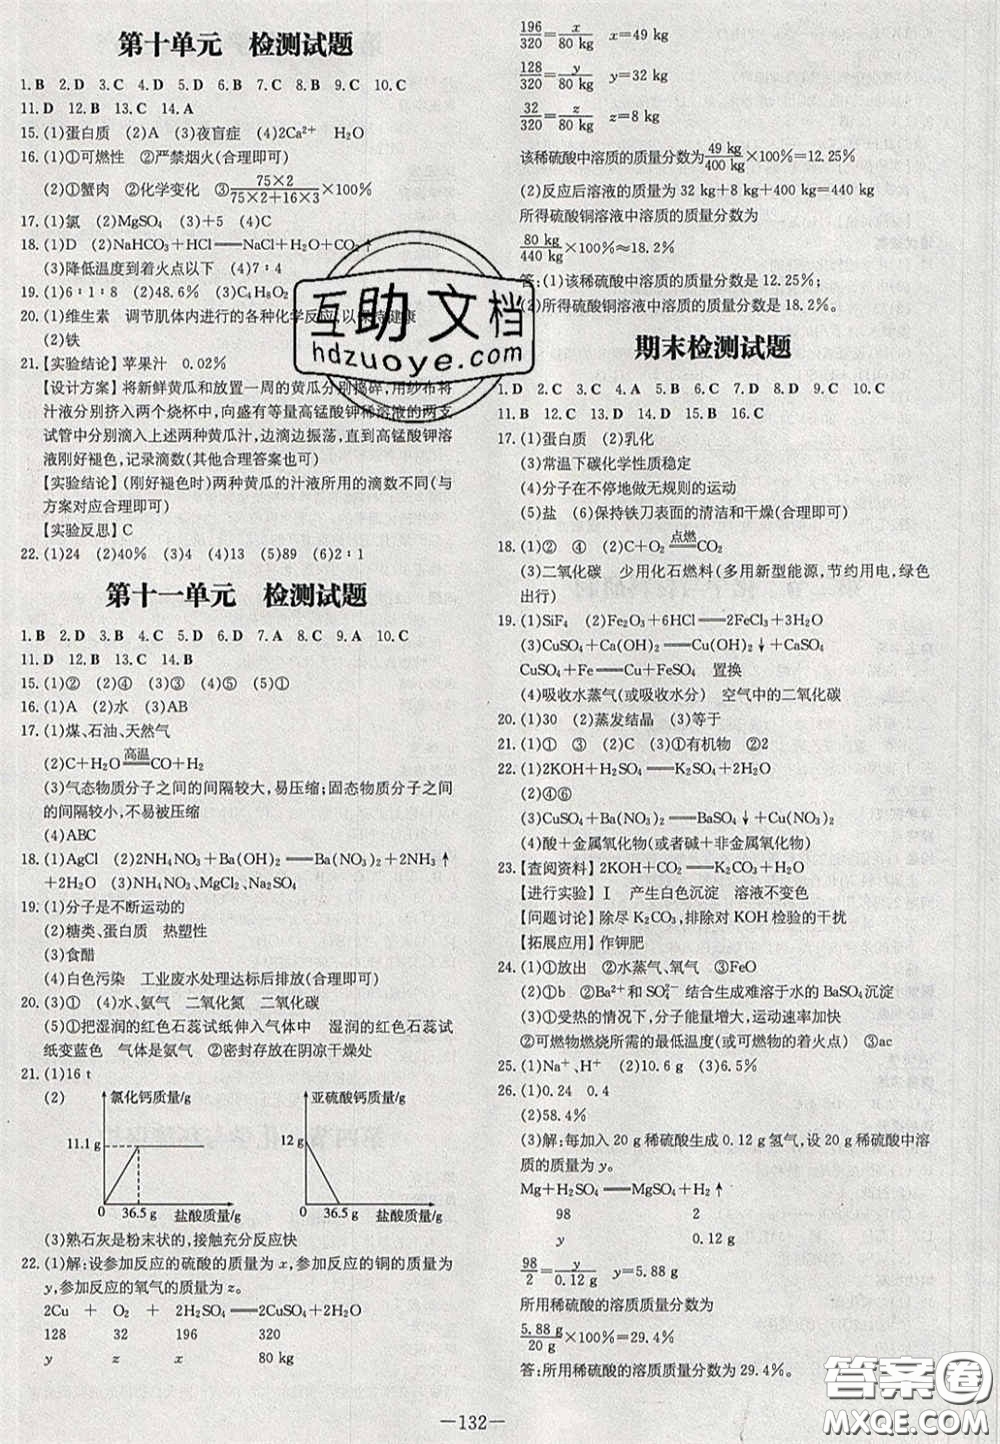 第十单元　检测试题
1.B　2.D　3.C　4.D　5.D　6.B　7.C　8.B　9.C　10.C
11.D　12.B　13.C　14.A
15.(1)蛋白质　(2)A　(3)夜盲症　(4)2Ca²⁺　H₂O
16.(1)①可燃性　②严禁烟火(合理即可)
(2)①蟹肉　②化学变化　③75×2/(75×2+16×3)×100%
17.(1)氯　(2)MgSO₄　(3)+5　(4)C
18.(1)D　(2)NaHCO₃+HCl══NaCl+H₂O+CO₂↑
(3)降低温度到着火点以下　(4)7∶4
19.(1)6∶1∶8　(2)48.6%　(3)C₄H₈O₂
20.(1)维生素　调节肌体内进行的各种化学反应,以保持健康
(2)铁
21.【实验结论】苹果汁　0.02%
【设计方案】将新鲜黄瓜和放置一周的黄瓜分别捣碎,用纱布将
汁液分别挤入两个烧杯中,向盛有等量高锰酸钾稀溶液的两支
试管中分别滴入上述两种黄瓜汁,边滴边振荡,直到高锰酸钾溶
液刚好褪色,记录滴数(其他合理答案也可)
【实验结论】(刚好褪色时)两种黄瓜的汁液所用的滴数不同(与
方案对应合理即可)
【实验反思】C
22.(1)24　(2)40%　(3)4　(4)13　(5)89　(6)2∶1
第十一单元　检测试题
1.B　2.D　3.D　4.C　5.D　6.D　7.A　8.C　9.A　10.C
11.D　12.B　13.C　14.B
15.(1)①②　(2)④　(3)③　(4)⑤　(5)①
16.(1)A　(2)水　(3)AB
17.(1)煤、石油、天然气
(2)C+H₂O 高温══ CO+H₂
(3)气态物质分子之间的间隔较大,易压缩;固态物质分子之间
的间隔较小,不易被压缩
(4)ABC
18.(1)AgCl　(2)2NH₄NO₃+Ba(OH)₂══Ba(NO₃)₂+2NH₃↑
+2H₂O　(3)NH₄NO₃、MgCl₂、Na₂SO₄
19.(1)分子是不断运动的
(2)糖类、蛋白质　热塑性
(3)食醋
(4)白色污染　工业废水处理达标后排放(合理即可)
20.(3)①　(4)水、氨气　二氧化氮　二氧化碳
(5)①把湿润的红色石蕊试纸伸入气体中　湿润的红色石蕊试
纸变蓝色　气体是氨气　②密封存放在阴凉干燥处
21.(1)16 t
(2)
氯化钙质量/g
11.1 g
0　36.5 g　盐酸质量/g
亚硫酸钙质量/g
12 g
0　36.5 g　盐酸质量/g
(3)熟石灰是粉末状的,接触充分反应快
22.(1)解:设参加反应的硫酸的质量为x,参加反应的铜的质量为
y,参加反应的氧气的质量为z。
2Cu　+　O₂　+　2H₂SO₄══2CuSO₄+2H₂O
128　32　196　320
y　z　x　80 kg
196/320=x/80 kg　x=49 kg
128/320=y/80 kg　y=32 kg
32/320=z/80 kg　z=8 kg
该稀硫酸中溶质的质量分数为49 kg/400 kg×100%=12.25%
(2)反应后溶液的质量为32 kg+8 kg+400 kg=440 kg
所得硫酸铜溶液中溶质的质量分数为
80 kg/440 kg×100%≈18.2%
答:(1)该稀硫酸中溶质的质量分数是12.25%;
(2)所得硫酸铜溶液中溶质的质量分数是18.2%。
期末检测试题
1.D　2.C　3.C　4.A　5.B　6.C　7.D　8.D　9.D　10.C
11.B　12.C　13.D　14.D　15.B　16.C
17.(1)蛋白质　(2)乳化
(3)常温下碳化学性质稳定
(4)分子在不停地做无规则的运动
(5)盐　(6)保持铁刀表面的清洁和干燥(合理即可)
18.(1)②　④　(2)C+O₂ 点燃══ CO₂
(3)二氧化碳　少用化石燃料(多用新型能源,节约用电,绿色
出行)
19.(1)SiF₄　(2)Fe₂O₃+6HCl══2FeCl₃+3H₂O
(3)CuSO₄+Ca(OH)₂══Cu(OH)₂↓+CaSO₄
CuSO₄+Fe══Cu+FeSO₄　置换
(4)吸收水蒸气(或吸收水分)　空气中的二氧化碳
20.(1)30　(2)蒸发结晶　(3)等于
21.(1)①　③　(2)C　(3)①有机物　②2
22.(1)2KOH+H₂SO₄══K₂SO₄+2H₂O
(2)④⑥
(3)CuSO₄+Ba(NO₃)₂══BaSO₄↓+Cu(NO₃)₂
(4)酸+金属氧化物(或者碱+非金属氧化物)
23.【查阅资料】2KOH+CO₂══K₂CO₃+H₂O
【进行实验】Ⅰ　产生白色沉淀　溶液不变色
【问题讨论】除尽K₂CO₃,排除对KOH检验的干扰
【拓展应用】作钾肥
24.(1)①放出　②水蒸气、氧气　③FeO
(2)①b　②Ba²⁺和SO₄²⁻结合生成难溶于水的BaSO₄沉淀
(3)①受热的情况下,分子能量增大,运动速率加快
②可燃物燃烧所需的最低温度(或可燃物的着火点)　③ac
25.(1)Na⁺、H⁺　(2)10.6 g　(3)6.5%
26.(1)0.24　0.4
(2)58.4%
(3)解:每加入20 g稀硫酸生成0.12 g氢气,设20 g稀硫酸中溶
质的质量为y。
Mg+H₂SO₄══MgSO₄+H₂↑
98　2
y　0.12 g
98/2=y/0.12 g　y=5.88 g
所用稀硫酸的溶质质量分数为
5.88 g/20 g×100%=29.4%
答:所用稀硫酸的溶质质量分数为29.4%。
—132—
互助文档
hdzuoye.com
答案圈
MXQE.COM